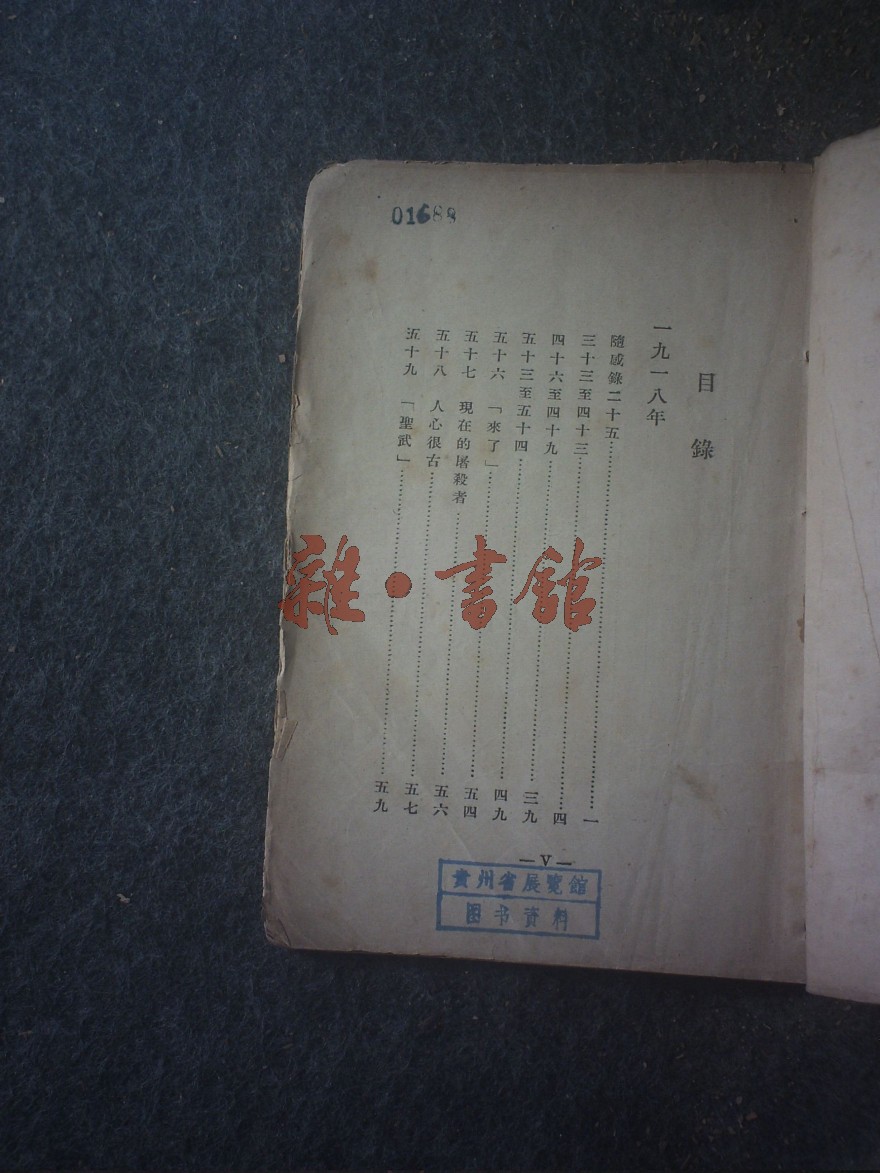 01688
目錄
一九一八年
隨感錄二十五……一
三十三至四十三……四
四十六至四十九……三九
五十三至五十四……四九
五十六 「來了」……五四
五十七 現在的屠殺者……五六
五十八 人心很古……五七
五十九 「聖武」……五九
—V—
貴州省展覽館
图书資料
雜·書館